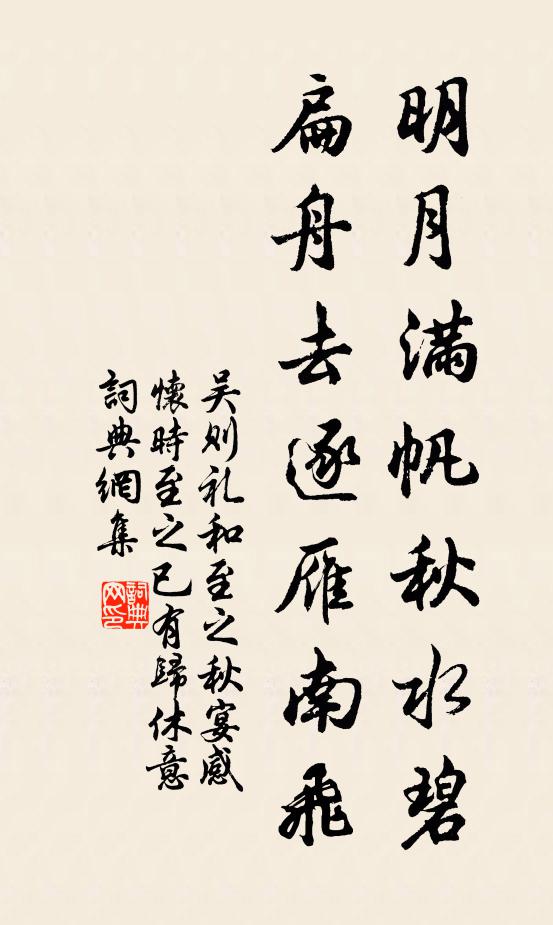 明月满帆秋水碧
扁舟去逐雁南飛
吴则礼和至之秋宴感
懷時至之已有歸休意
詞典網集
詞典
网印